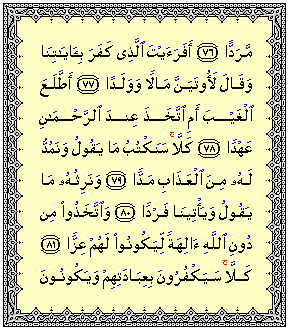 مَّرَدًّا ﴿٧٦﴾ أَفَرَءَيْتَ ٱلَّذِى كَفَرَ بِـَٔايَـٰتِنَا
وَقَالَ لَأُوتَيَنَّ مَالًا وَوَلَدًا ﴿٧٧﴾ أَطَّلَعَ
ٱلْغَيْبَ أَمِ ٱتَّخَذَ عِندَ ٱلرَّحْمَـٰنِ
عَهْدًا ﴿٧٨﴾ كَلَّا ۚ سَنَكْتُبُ مَا يَقُولُ وَنَمُدُّ
لَهُۥ مِنَ ٱلْعَذَابِ مَدًّا ﴿٧٩﴾ وَنَرِثُهُۥ مَا
يَقُولُ وَيَأْتِينَا فَرْدًا ﴿٨٠﴾ وَٱتَّخَذُوا۟ مِن
دُونِ ٱللَّهِ ءَالِهَةً لِّيَكُونُوا۟ لَهُمْ عِزًّا ﴿٨١﴾
كَلَّا ۚ سَيَكْفُرُونَ بِعِبَادَتِهِمْ وَيَكُونُونَ